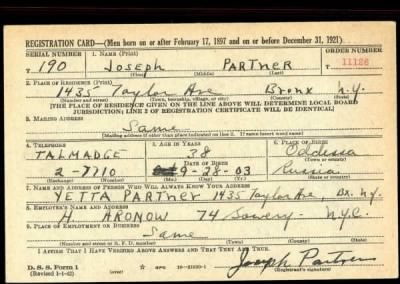 REGISTRATION CARD—(Men born on or after February 17, 1897 and on or before December 31, 1921)
SERIAL NUMBER 1. NAME (Print) ORDER NUMBER
190 JOSEPH PARTNER 11126
(First) (Middle) (Last)
2. PLACE OF RESIDENCE (Print)
1435 Taylor Ave Bronx N.Y.
(Number and street) (Town, township, village, or city) (County) (State)
[THE PLACE OF RESIDENCE GIVEN ON THE LINE ABOVE WILL DETERMINE LOCAL BOARD
JURISDICTION; LINE 2 OF REGISTRATION CERTIFICATE WILL BE IDENTICAL]
3. MAILING ADDRESS
Same
[Mailing address if other than place indicated on line 2. If same insert word same]
4. TELEPHONE 5. AGE IN YEARS 6. PLACE OF BIRTH
TALMADGE 38 Odessa
DATE OF BIRTH (Town or county)
2-7710 9-28-03 Russia
(Exchange) (Number) (Mo.) (Day) (Yr.) (State or country)
7. NAME AND ADDRESS OF PERSON WHO WILL ALWAYS KNOW YOUR ADDRESS
YETTA PARTNER 1435 Taylor Ave, Bx. N.Y.
8. EMPLOYER'S NAME AND ADDRESS
H. ARONOW 74 Bowery - N.Y.C.
9. PLACE OF EMPLOYMENT OR BUSINESS
Same
(Number and street or R. F. D. number) (Town) (County) (State)
I AFFIRM THAT I HAVE VERIFIED ABOVE ANSWERS AND THAT THEY ARE TRUE.
D. S. S. Form 1 Joseph Partner
(Revised 1-1-42) (over) GPO (Registrant's signature)